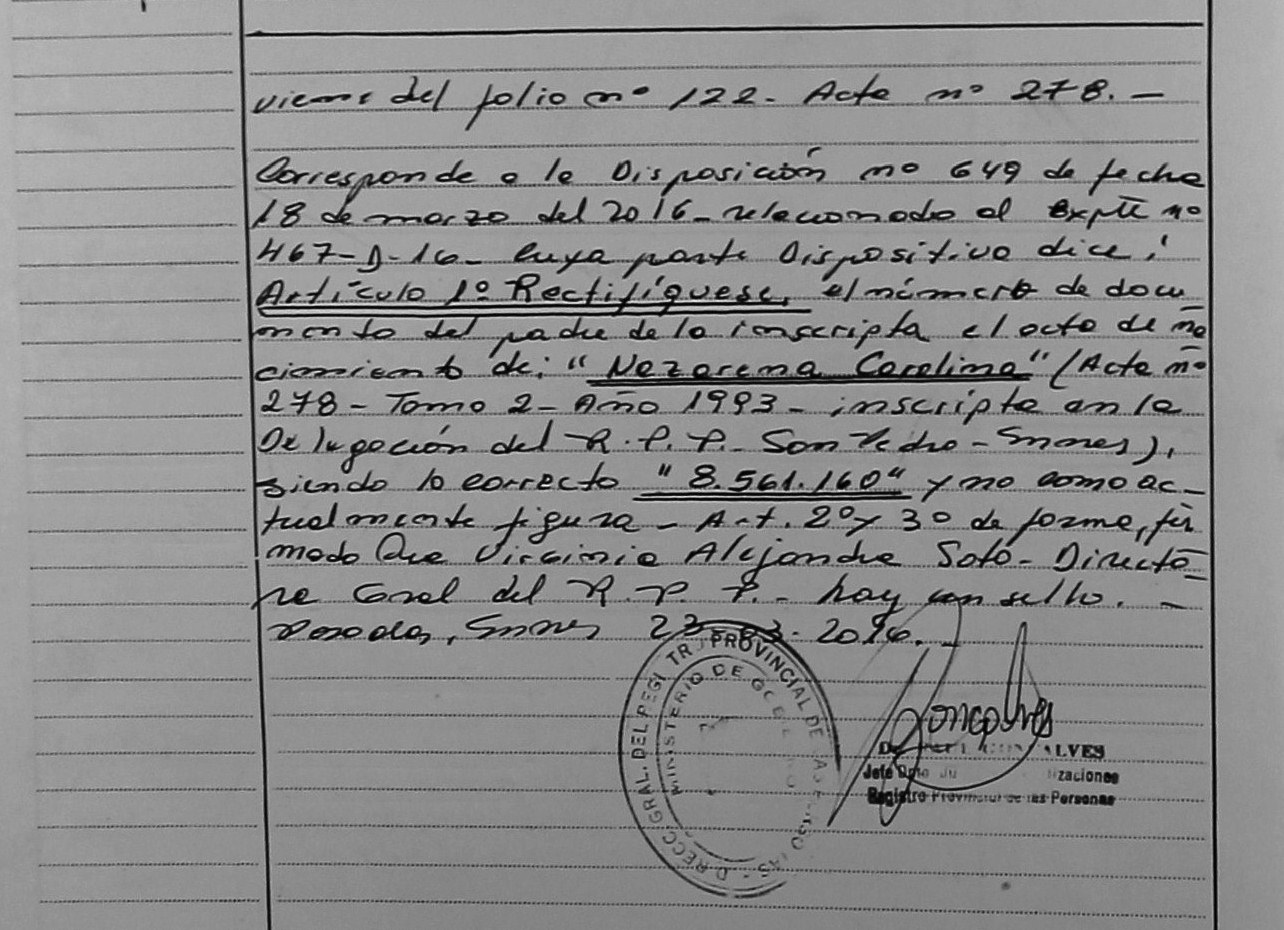 viene del folio nº 122. Acta nº 278. -
Corresponde a la Disposición nº 649 de fecha
18 de marzo del 2016 - relacionado al Expte nº
467-D-16 - Cuya parte Dispositiva dice:
Artículo 1º Rectifíquese, el número de docu
mento del padre de la inscripta el acta de na
cimiento de: "Nazarena Carolina" (Acta nº
278 - Tomo 2 - Año 1993 - inscripta en la
Delegación del R.P.P. San Pedro - Smnes),
siendo lo correcto "8.561.160" y no como ac-
tualmente figura - Art. 2º y 3º de forma, fir
mado Dra Virginia Alejandra Soto - Directo-
ra Gral del R.P.P. - hay un sello. -
Posadas, Smnes 23 - 03 - 2016. -
DIRECC. GRAL. DEL REGISTRO PROVINCIAL DE LAS PERSONAS
MINISTERIO DE GOBIERNO
Goncalves
ALVES
Jefe Dpto
izaciones
Registro Provincial de las Personas